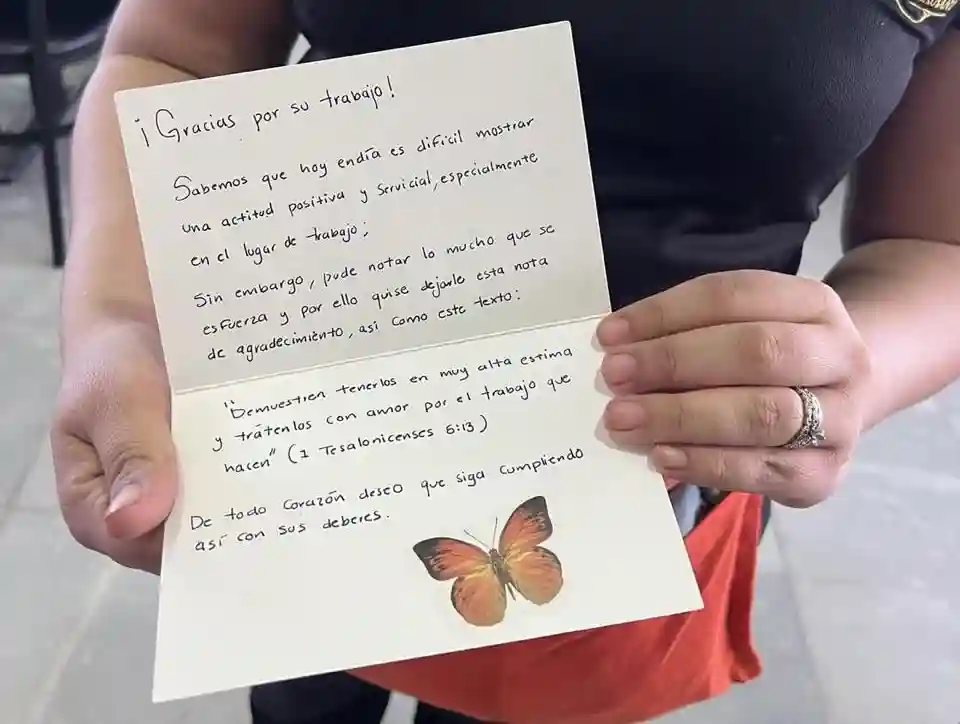 ¡Gracias por su trabajo!
Sabemos que hoy endía es difícil mostrar
una actitud positiva y servicial, especialmente
en el lugar de trabajo;
Sin embargo, pude notar lo mucho que se
esfuerza y por ello quise dejarle esta nota
de agradecimiento, así como este texto:
"Demuestren tenerlos en muy alta estima
y trátenlos con amor por el trabajo que
hacen" (1 Tesalonicenses 5:13)
De todo corazón deseo que siga cumpliendo
así con sus deberes.